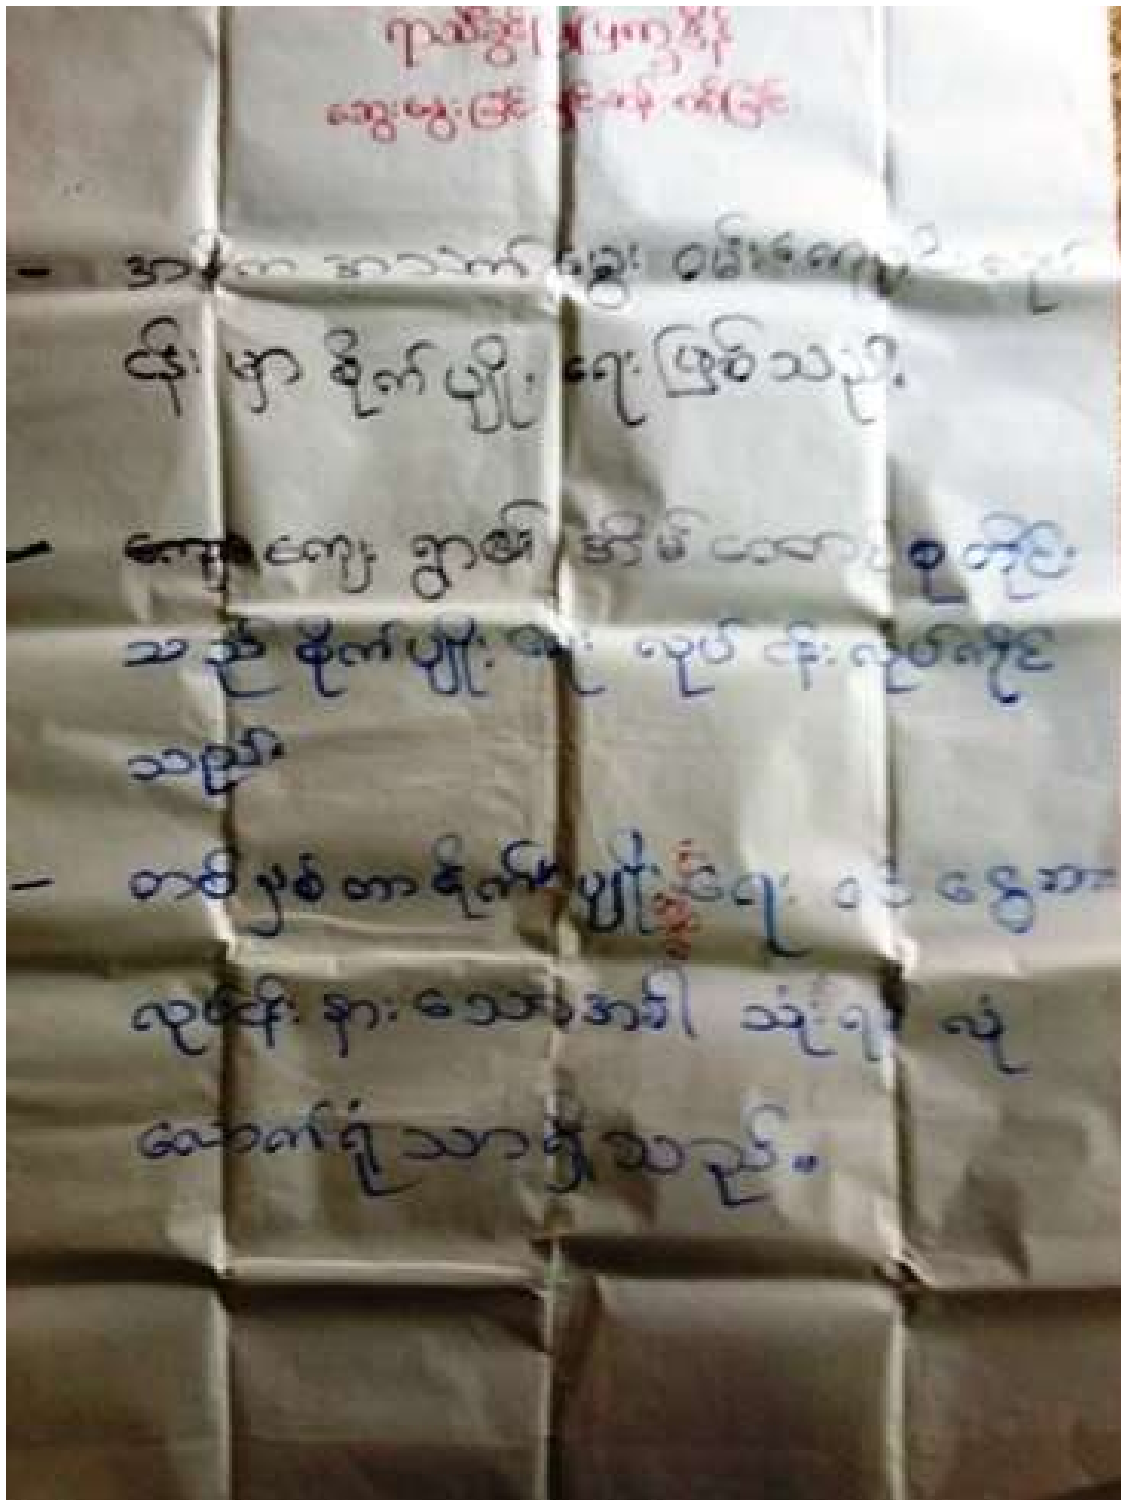 ရာသီခွင် ပြက္ခဒိန်
ဆွေးနွေးခြင်း
- အဓိက အသက်မွေး ဝမ်းကျောင်း လုပ်
ငန်း မှာ စိုက်ပျိုး ရေး ဖြစ်သည်.
- ကျေး ရွာ၏ အိမ်ထောင် စု တိုင်း
သည် စိုက်ပျိုး ရေး လုပ် ငန်း လုပ်ကိုင်
သည်။
- တစ်နှစ်တာ စိုက်ပျိုး ရေး ဝင် ငွေအား
လုပ်ငန်း နားသောအခါ သုံးရန် လုံ
လောက်ရုံ သာရှိသည်။